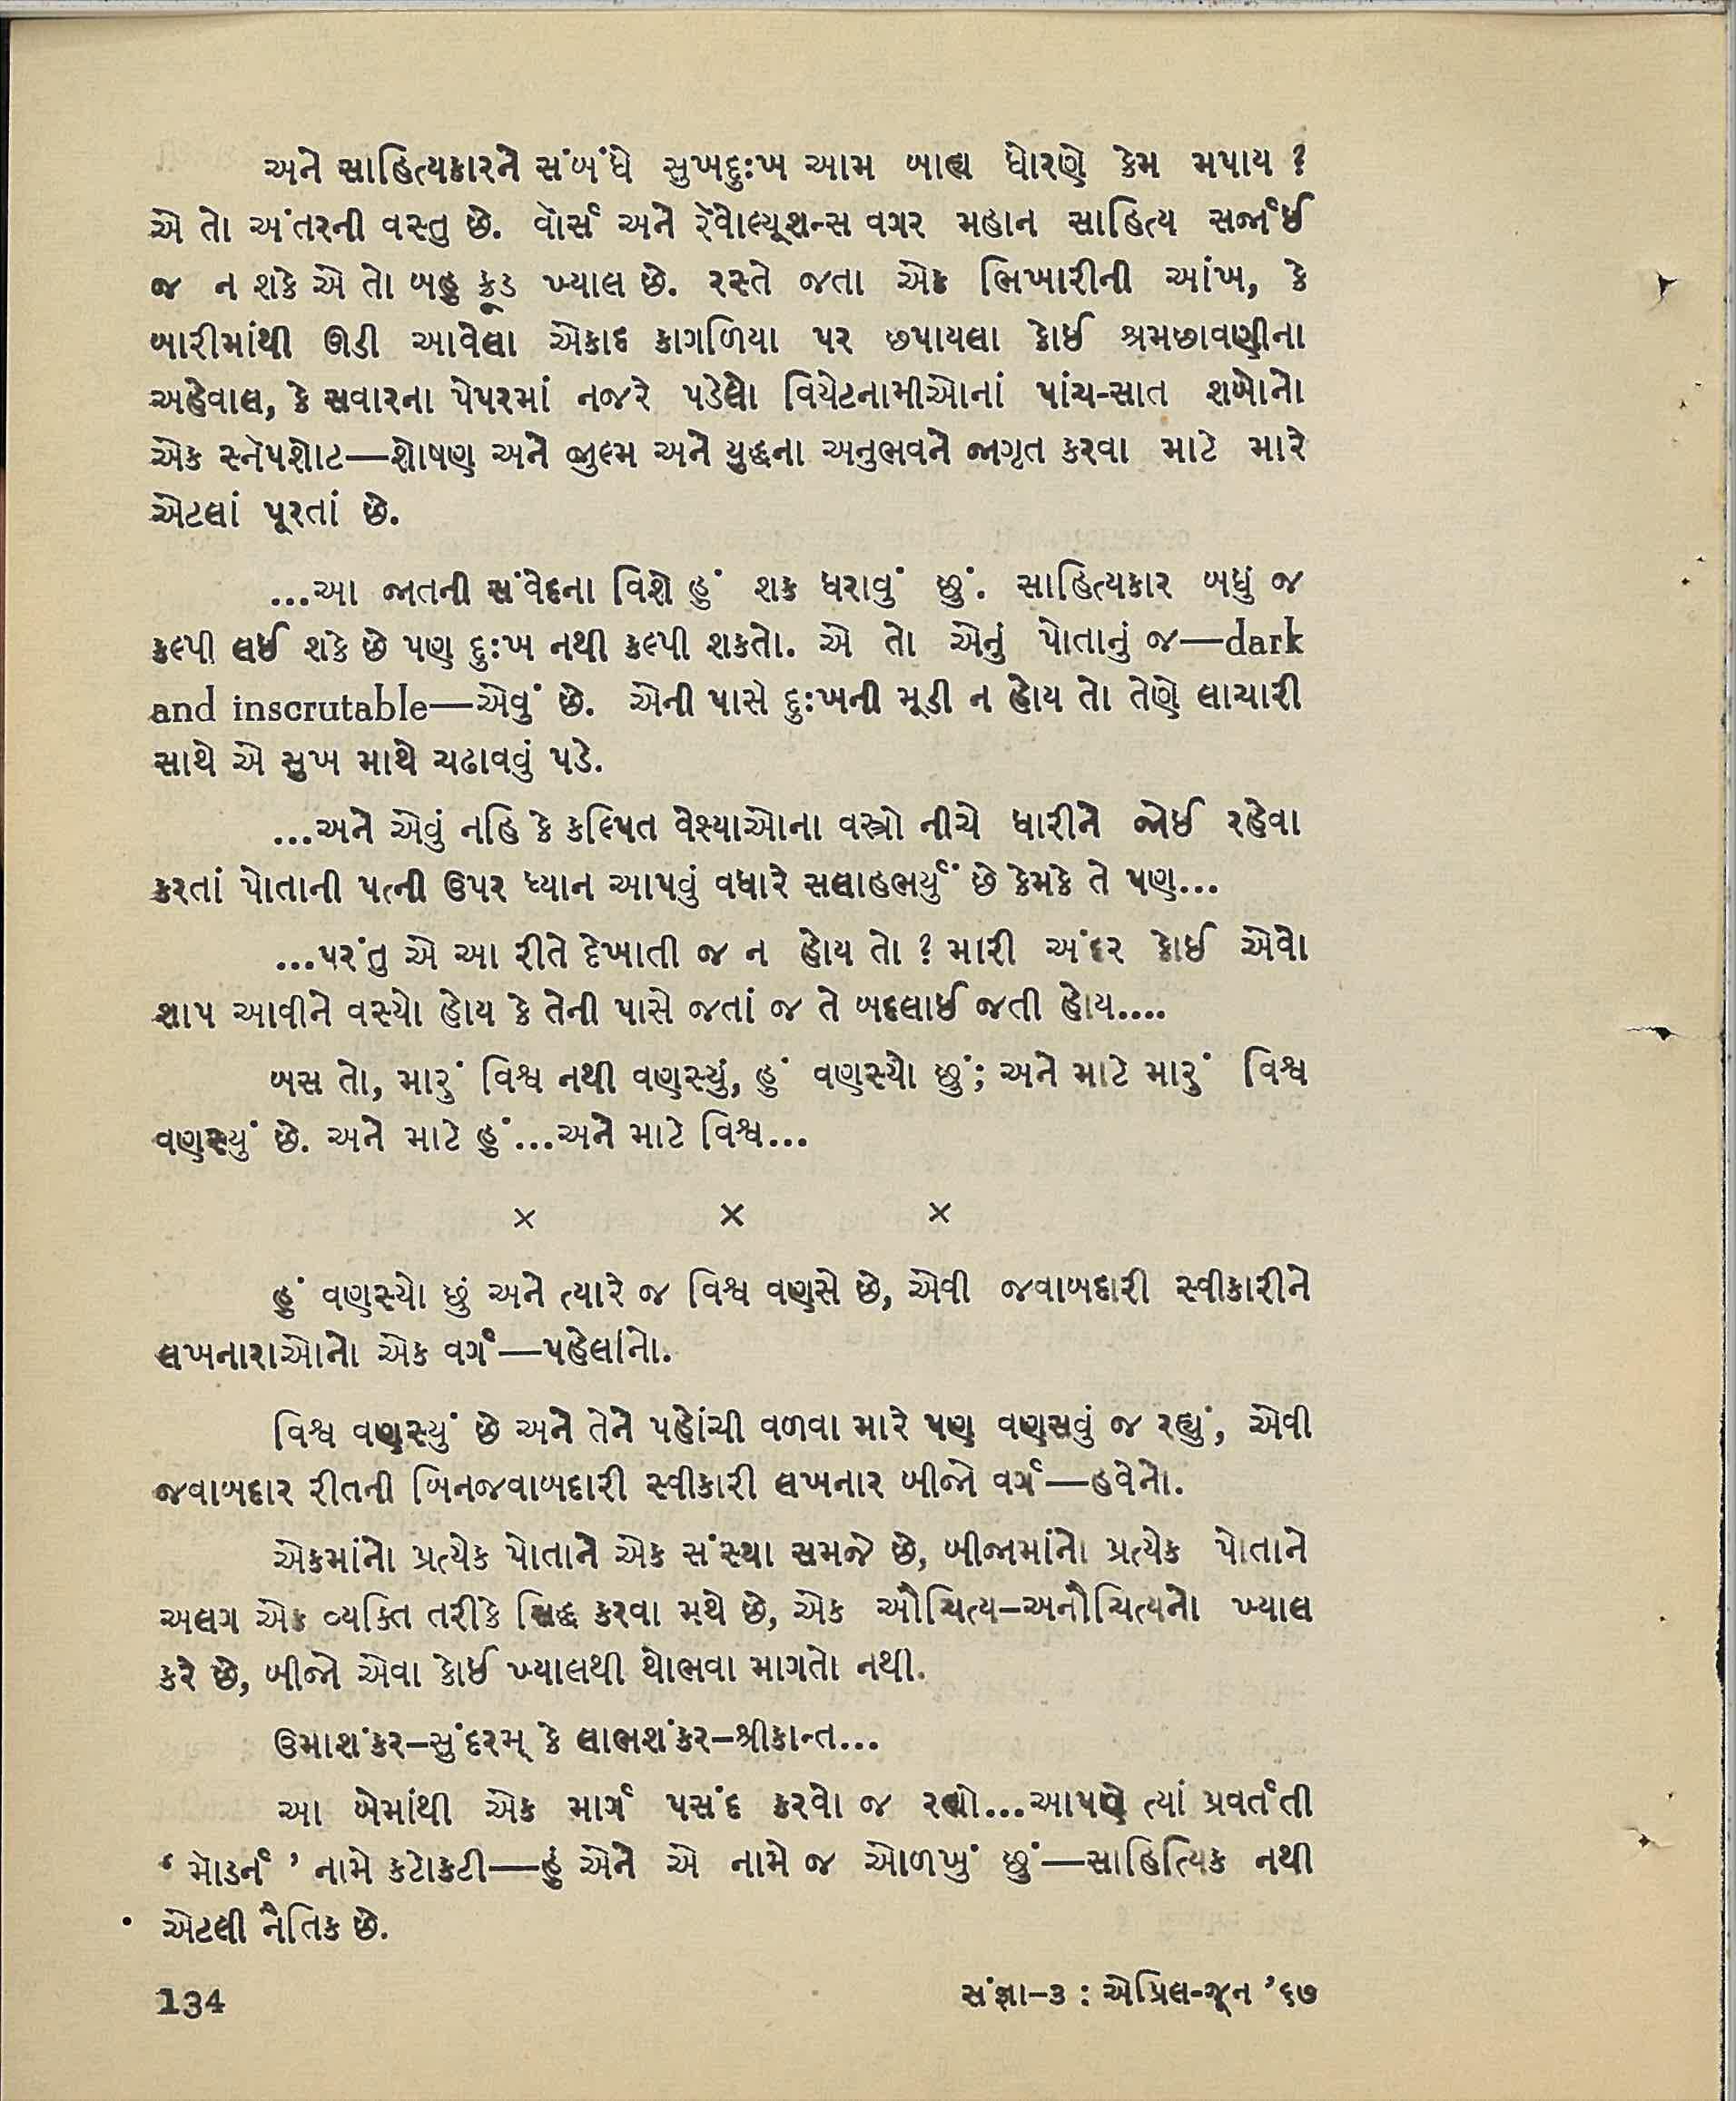 અને સાહિત્યકારને સંબંધે સુખદુઃખ આમ બાહ્ય ધોરણે કેમ મપાય ?
એ તો અંતરની વસ્તુ છે. વૉર્સ અને રૅવોલ્યૂશન્સ વગર મહાન સાહિત્ય સર્જાઈ
જ ન શકે એ તો બહુ ક્રૂડ ખ્યાલ છે. રસ્તે જતા એક ભિખારીની આંખ, કે
બારીમાંથી ઊડી આવેલા એકાદ કાગળિયા પર છપાયલા કોઈ શ્રમછાવણીના
અહેવાલ, કે સવારના પેપરમાં નજરે પડેલો વિયેટનામીઓનાં પાંચ-સાત શબોનો
એક સ્નૅપશોટ—શોષણ અને જુલ્મ અને યુદ્ધના અનુભવને જાગૃત કરવા માટે મારે
એટલાં પૂરતાં છે.
...આ જાતની સંવેદના વિશે હું શક ધરાવું છું. સાહિત્યકાર બધું જ
કલ્પી લઈ શકે છે પણ દુઃખ નથી કલ્પી શકતો. એ તો એનું પોતાનું જ—dark
and inscrutable—એવું છે. એની પાસે દુઃખની મૂડી ન હોય તો તેણે લાચારી
સાથે એ સુખ માથે ચઢાવવું પડે.
...અને એવું નહિ કે કલ્પિત વેશ્યાઓના વસ્ત્રો નીચે ધારીને જોઈ રહેવા
કરતાં પોતાની પત્ની ઉપર ધ્યાન આપવું વધારે સલાહભર્યું છે કેમકે તે પણ...
...પરંતુ એ આ રીતે દેખાતી જ ન હોય તો ? મારી અંદર કોઈ એવો
શાપ આવીને વસ્યો હોય કે તેની પાસે જતાં જ તે બદલાઈ જતી હોય....
બસ તો, મારું વિશ્વ નથી વણસ્યું, હું વણસ્યો છું; અને માટે મારું વિશ્વ
વણસ્યું છે. અને માટે હું...અને માટે વિશ્વ...
× × ×
હું વણસ્યો છું અને ત્યારે જ વિશ્વ વણસે છે, એવી જવાબદારી સ્વીકારીને
લખનારાઓનો એક વર્ગ—પહેલાંનો.
વિશ્વ વણસ્યું છે અને તેને પહોંચી વળવા મારે પણ વણસવું જ રહ્યું, એવી
જવાબદાર રીતની બિનજવાબદારી સ્વીકારી લખનાર બીજો વર્ગ—હવેનો.
એકમાંનો પ્રત્યેક પોતાને એક સંસ્થા સમજે છે, બીજામાંનો પ્રત્યેક પોતાને
અલગ એક વ્યક્તિ તરીકે સિદ્ધ કરવા મથે છે, એક ઔચિત્ય-અનૌચિત્યનો ખ્યાલ
કરે છે, બીજો એવા કોઈ ખ્યાલથી થોભવા માગતો નથી.
ઉમાશંકર–સુંદરમ્ કે લાભશંકર–શ્રીકાન્ત...
આ બેમાંથી એક માર્ગ પસંદ કરવો જ રહ્યો...આપણે ત્યાં પ્રવર્તંતી
‘ મૉડર્ન ’ નામે કટોકટી—હું એને એ નામે જ ઓળખું છું—સાહિત્યિક નથી
એટલી નૈતિક છે.
134
સંજ્ઞા–૩ : એપ્રિલ-જૂન ’૬૭